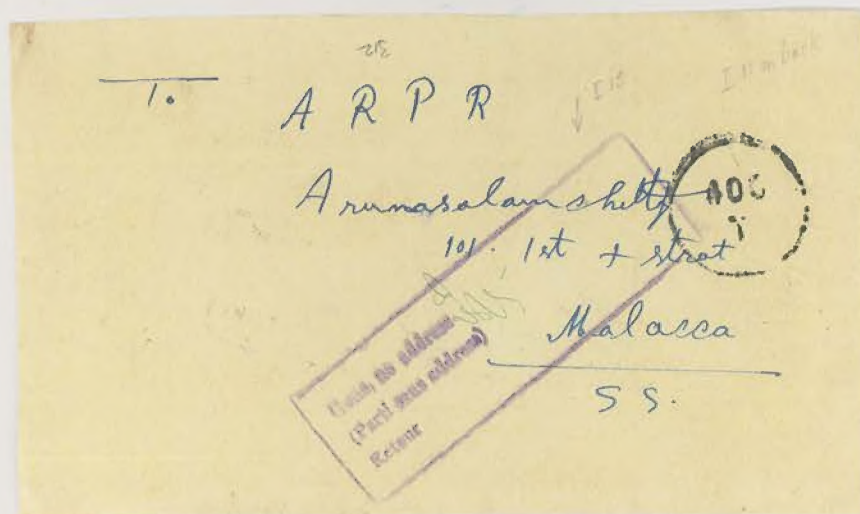 To
A R P R
Arunasalam chetty
101. 1st + strat
Malacca
S S.
Gone, no address
(Parti sans address)
Retour
T
I 11 on back